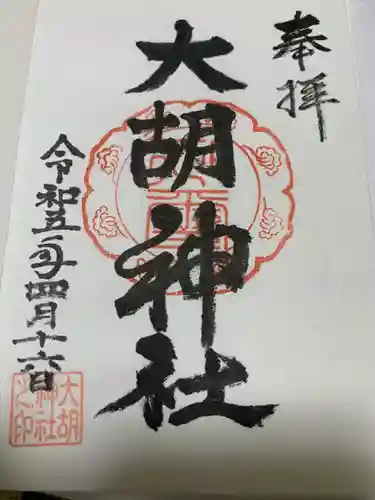 奉拝
大胡神社
令和五年四月十六日
大胡
神社
之印